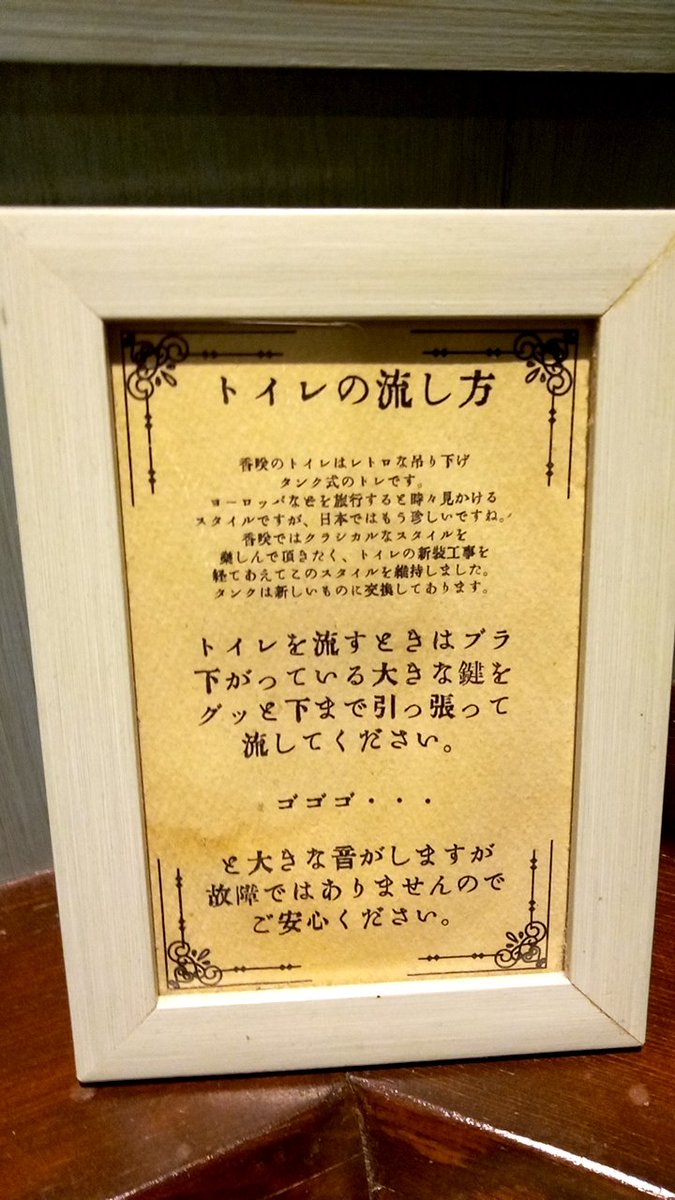 トイレの流し方
香咲のトイレはレトロな吊り下げ
タンク式のトレです。
ヨーロッパなどを旅行すると時々見かける
スタイルですが、日本ではもう珍しいですね。
香咲ではクラシカルなスタイルを
楽しんで頂きたく、トイレの新装工事を
経てあえてこのスタイルを維持しました。
タンクは新しいものに交換してあります。
トイレを流すときはブラ
下がっている大きな鍵を
グッと下まで引っ張って
流してください。
ゴゴゴ・・・
と大きな音がしますが
故障ではありませんので
ご安心ください。